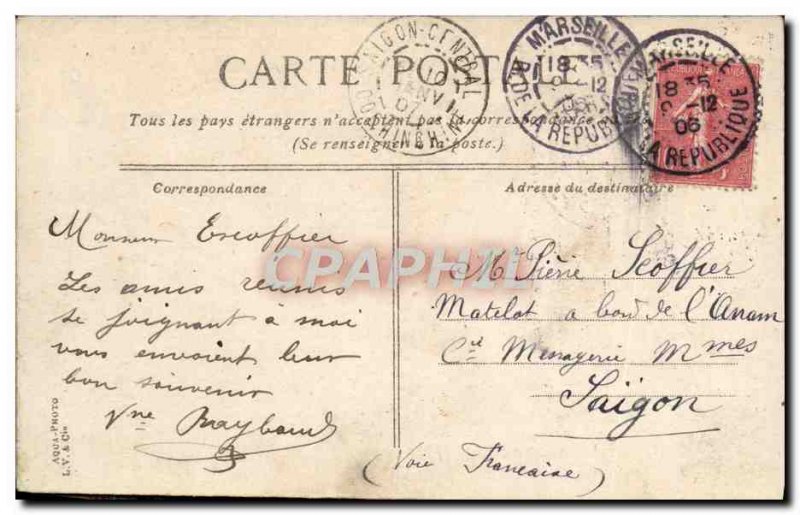 CARTE POSTALE
Tous les pays étrangers n'acceptent pas la correspondance au
(Se renseigner à la poste.)
SAIGON-CENTRAL
10
JANV
07
COCHINCHINE
MARSEILLE
18 35
12
06
R. DE LA RÉPUBLIQUE
MARSEILLE
18 35
12
06
LA RÉPUBLIQUE
Correspondance
Monsieur Escoffier
Les amis réunis
se joignant à moi
vous envoient leur
bon souvenir
Vne Raybaud
Adresse du destinataire
Mr Pierre Scoffier
Matelot a bord de l'Anam
Cie Menagerie Mmes
Saigon
(Voie Francaise)
AQUA-PHOTO
L.V. & Cie
CPAPHIL